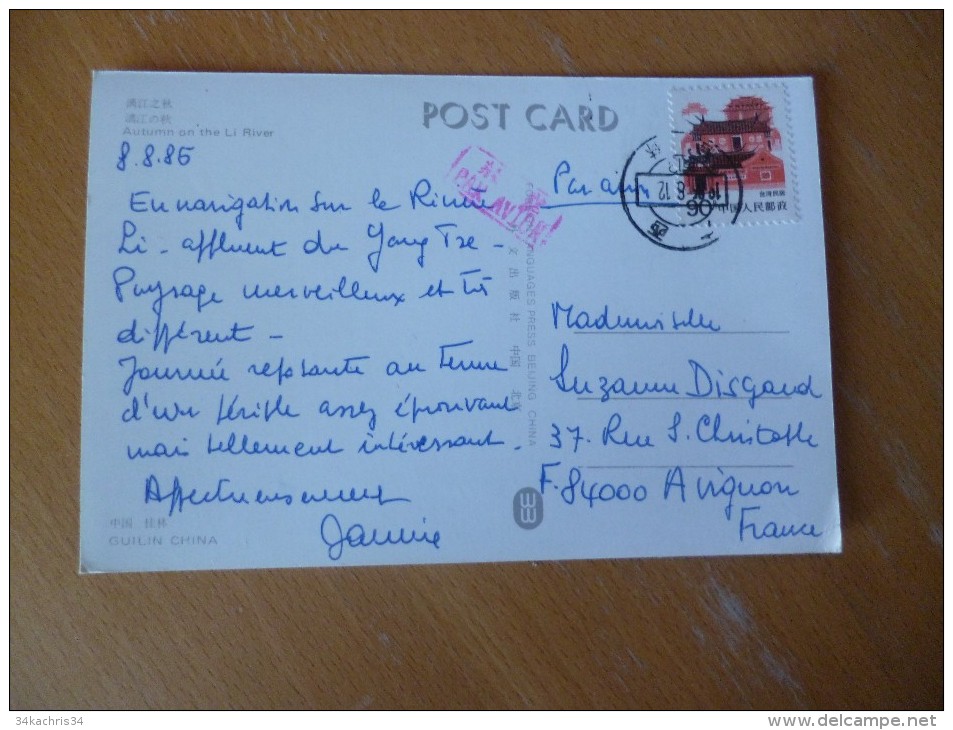 漓江之秋
漓江の秋
Autumn on the Li River
POST CARD
8.8.86
PAR AVION
Par avion
En navigation sur la Rivière
Li - affluent du Yang Tse -
Paysage merveilleux et très
différent -
Journée reposante au terme
d'un périple assez éprouvant
mais tellement intéressant -
Affectueusement
Jannie
Mademoiselle
Suzanne Disgand
37. Rue S. Christophe
F. 84000 Avignon
France
中国人民邮政
LANGUAGES PRESS BEIJING CHINA
文出版社 中国 北京
中国 桂林
GUILIN CHINA
34kachris34
http://www.delcampe.net